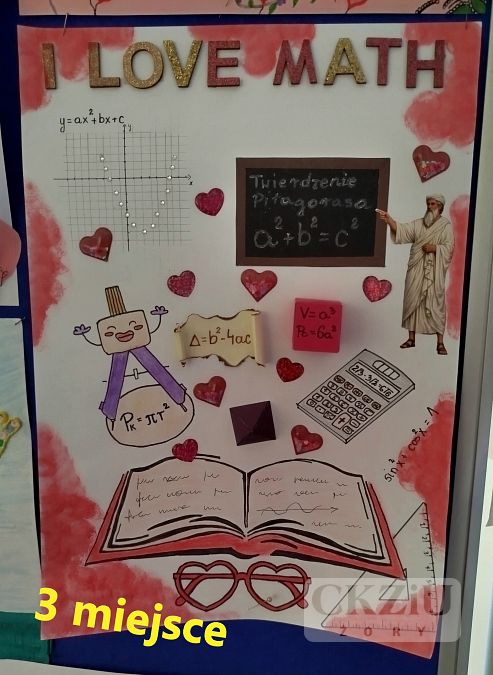 I LOVE MATH
y=ax²+bx+c
y
x
Twierdzenie
Pitagorasa
a²+b²=c²
Δ=b²-4ac
V=a³
Pc=6a²
Pₖ=πr²
sin²x+cos²x=1
3 miejsce
CKZiU
ŻORY